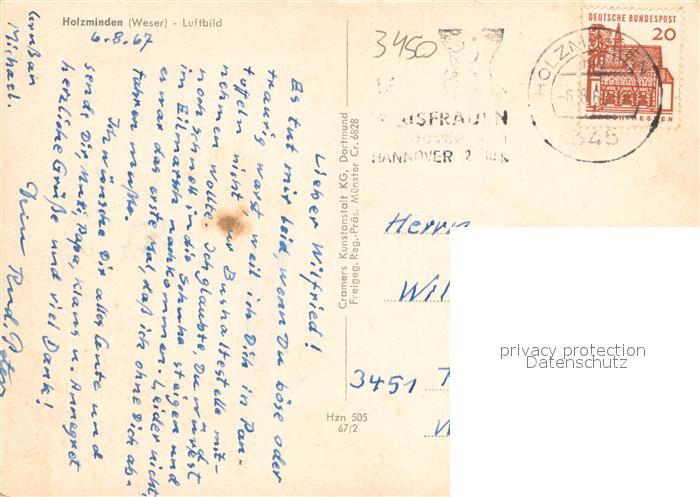 Holzminden (Weser) - Luftbild
6.8.67
Lieber Wilfried!
Es tut mir leid, wenn Du böse oder
traurig warst weil ich Dich in Pan-
tuffeln nicht zur Bushaltestelle mit-
nehmen wollte. Ich glaubte, Du würdest
noch schnell in die Schuhe steigen und
im Eilmarsch nachkommen. Leider nicht,
es war das erste mal, daß ich ohne Dich ab-
fahren mußte.
Ich wünsche Dir alles Gute und
sende Dir, Mutti, Papa, Klaus u. Annegret
herzliche Grüße und viel Dank!
Dein
Gruß an
Michael.
Cramers Kunstanstalt KG, Dortmund
Freigeg. Reg.-Präs. Münster Cr. 6828
Hzn 505
67/2
3450
HAUSFRAUEN
HANNOVER
HOLZMINDEN
345
DEUTSCHE BUNDESPOST
20
Herrn
Wil
3451
privacy protection
Datenschutz